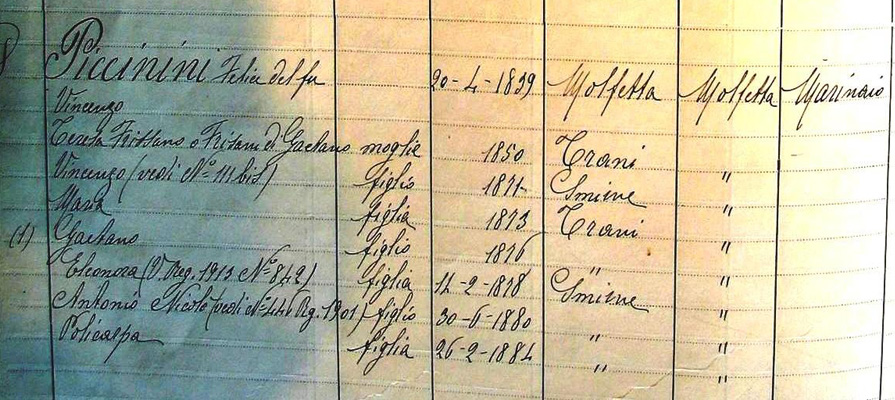 Piccinini Felice del fu 20-4-1839 Molfetta Molfetta Marinaio
Vincenzo
Teresa Frissano o Frisani di Gaetano moglie 1850 Trani "
Vincenzo (vedi Nº 111 bis) figlio 1871 Smirne "
Maria figlia 1873 Trani "
(1) Gaetano figlio 1876 " "
Eleonora (V. Reg. 1913 Nº 842) figlia 14-2-1878 Smirne "
Antonio Nicola (vedi Nº 446 Rg. 1901) figlio 30-6-1880 " "
Policarpa figlia 26-2-1884 " "